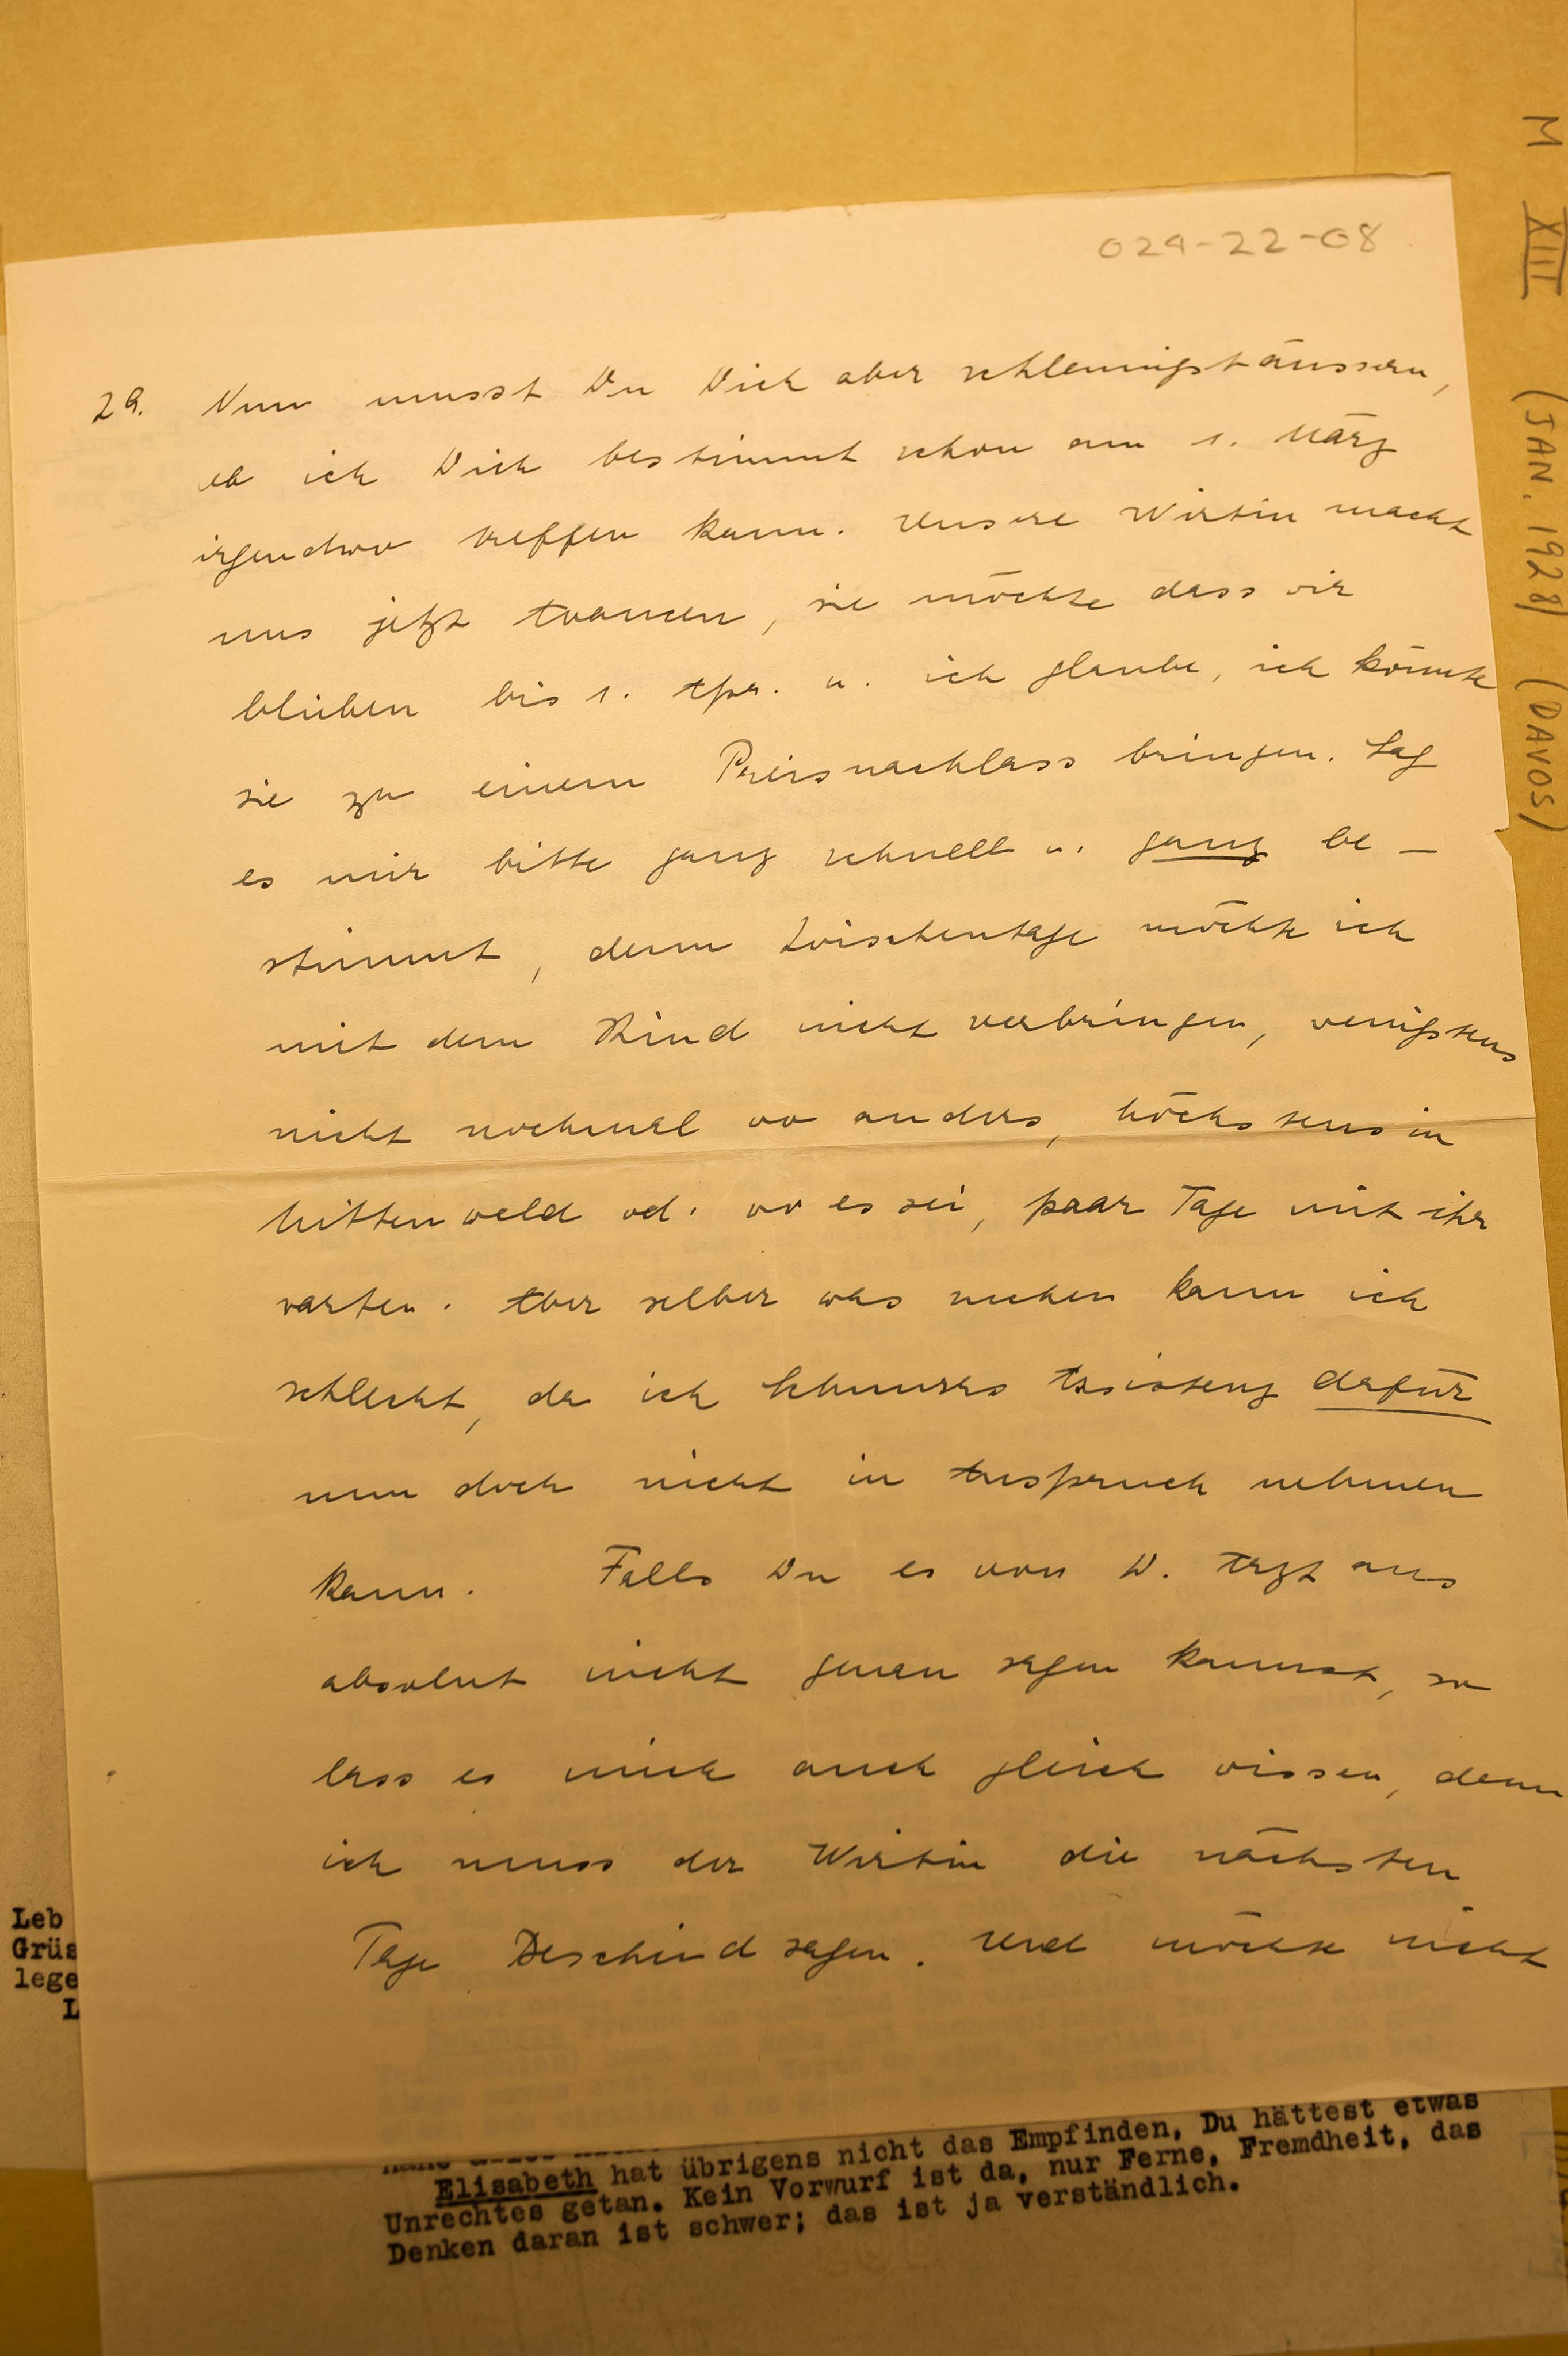 024-22-08
M XIII (JAN. 1928) (DAVOS)
29. Nun musst Du Dich aber schleunigst äussern,
ob ich Dich bestimmt schon am 1. März
irgendwo treffen kann. Unsere Wirtin macht
uns jetzt Avancen, sie möchte dass wir
bleiben bis 1. Apr. u. ich glaube, ich könnte
sie zu einem Preisnachlass bringen. Sag
es mir bitte ganz schnell u. ganz be-
stimmt, denn Zwischentage möchte ich
mit dem Kind nicht verbringen, wenigstens
nicht nochmal wo anders, höchstens in
Mittenwald od. wo es sei, paar Tage mit ihr
warten. Aber selber was machen kann ich
schlecht, da ich Assistenz dafür
nun doch nicht in Anspruch nehmen
kann. Falls Du es von D. Arzt aus
absolut nicht genau sagen kannst, so
lass es mich auch gleich wissen, denn
ich muss der Wirtin die nächsten
Tage Bescheid sagen. Und möchte nicht
Leb
Grüs
lege
L
Elisabeth hat übrigens nicht das Empfinden, Du hättest etwas
Unrechtes getan. Kein Vorwurf ist da, nur Ferne, Fremdheit, das
Denken daran ist schwer; das ist ja verständlich.